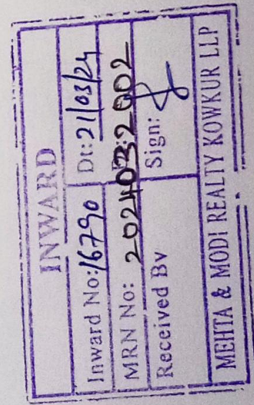 INWARD
Inward No: 16790 Dt: 21/03/24
MRN No: 20240322002
Received By Sign:
MEHTA & MODI REALTY KOWKUR LLP